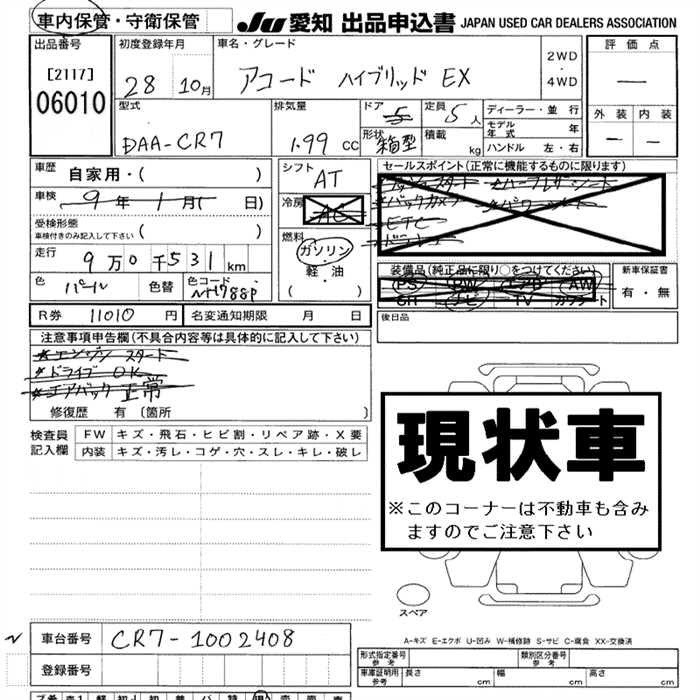 車内保管・守衛保管
JU 愛知 出品申込書 JAPAN USED CAR DEALERS ASSOCIATION
出品番号
[2117]
06010
初度登録年月
28 10月
車名・グレード
アコード ハイブリッド EX
2WD
・
4WD
評価点
—
外装 内装
— —
型式
DAA-CR7
排気量
1.99 CC
ドア
5
形状
箱型
定員
5人
積載
kg
ディーラー・並行
モデル年式 年
ハンドル 左・右
車歴
自家用・( )
車検
9年 1月( 日)
受検形態
車検付きのみ記入して下さい ( )
走行
9万0千531km
色
パール
色替
色コード
NH788P
シフト
AT
冷房
AC
燃料
ガソリン
・
軽・油
( )
セールスポイント(正常に機能するものに限ります)
プッシュスタート *ハーフレザーシート
*バックカメラ *パワーシート
*ETC
装備品(純正品に限り○をつけてください)
PS PW エアB AW
SH ナビ TV カワシート
新車保証書
有・無
R券 11010 円 名変通知期限 月 日
後日品
注意事項申告欄(不具合内容等は具体的に記入して下さい)
*エンジン スタート
*ドライブ OK
*エアバック 正常
修復歴 有 〔箇所 〕
検査員記入欄
FW キズ・飛石・ヒビ割・リペア跡・X要
内装 キズ・汚レ・コゲ・穴・スレ・キレ・破レ
現状車
※このコーナーは不動車も含み
ますのでご注意下さい
スペア
A-キズ E-エクボ U-凹み W-補修跡 S-サビ C-腐食 XX-交換済
車台番号 CR7-1002408
登録番号
形式指定番号
参考
類別区分番号
参考
車庫証明用
参考
長さ cm 幅 cm 高さ cm